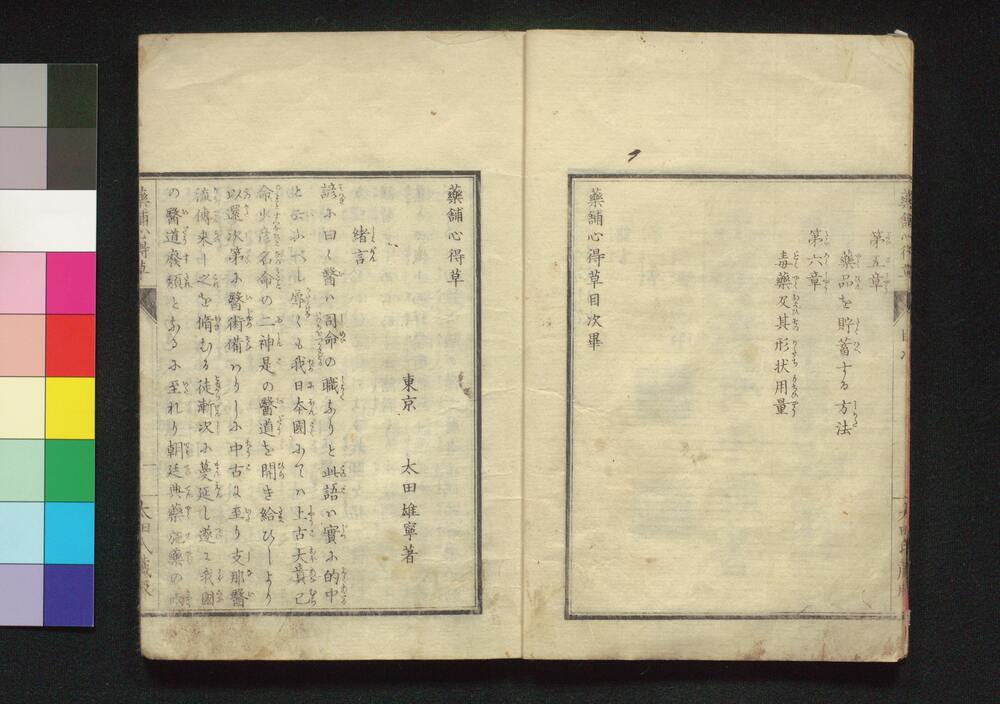 第五章
藥品を貯蓄する方法
第六章
毒藥及其形状用量
藥舖心得草目次畢
藥舖心得草
東京 太田雄寧著
緒言
諺に曰く醫ハ司命の職なりと此語ハ實に的中
我日本國に於てハ上古大貴己
命少彦名命の二神是の醫道を開き給ひしより
以還次第に醫術備ハりしに中古に至り支那醫
流傳来し之を脩むる徒漸次に蔓延し遂に我國
の醫道廢頽となるに至れり朝廷典藥施藥の
藥舖心得草